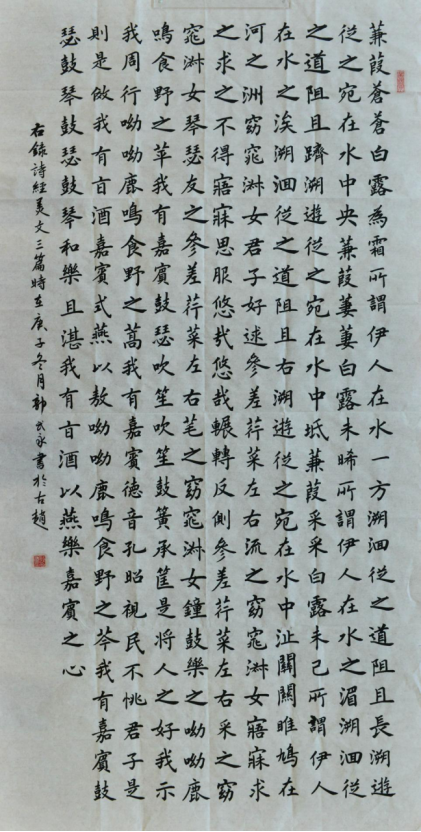 蒹葭蒼蒼白露為霜所謂伊人在水一方溯洄從之道阻且長溯遊
從之宛在水中央蒹葭萋萋白露未晞所謂伊人在水之湄溯洄從
之道阻且躋溯遊從之宛在水中坻蒹葭采采白露未已所謂伊人
在水之涘溯洄從之道阻且右溯遊從之宛在水中沚關關雎鳩在
河之洲窈窕淑女君子好逑參差荇菜左右流之窈窕淑女寤寐求
之求之不得寤寐思服悠哉悠哉輾轉反側參差荇菜左右采之窈
窕淑女琴瑟友之參差荇菜左右芼之窈窕淑女鐘鼓樂之呦呦鹿
鳴食野之苹我有嘉賓鼓瑟吹笙吹笙鼓簧承筐是將人之好我示
我周行呦呦鹿鳴食野之蒿我有嘉賓德音孔昭視民不恌君子是
則是傚我有旨酒嘉賓式燕以敖呦呦鹿鳴食野之芩我有嘉賓鼓
瑟鼓琴鼓瑟鼓琴和樂且湛我有旨酒以燕樂嘉賓之心
右錄詩經美文三篇時在庚子冬月郭永書於古趙